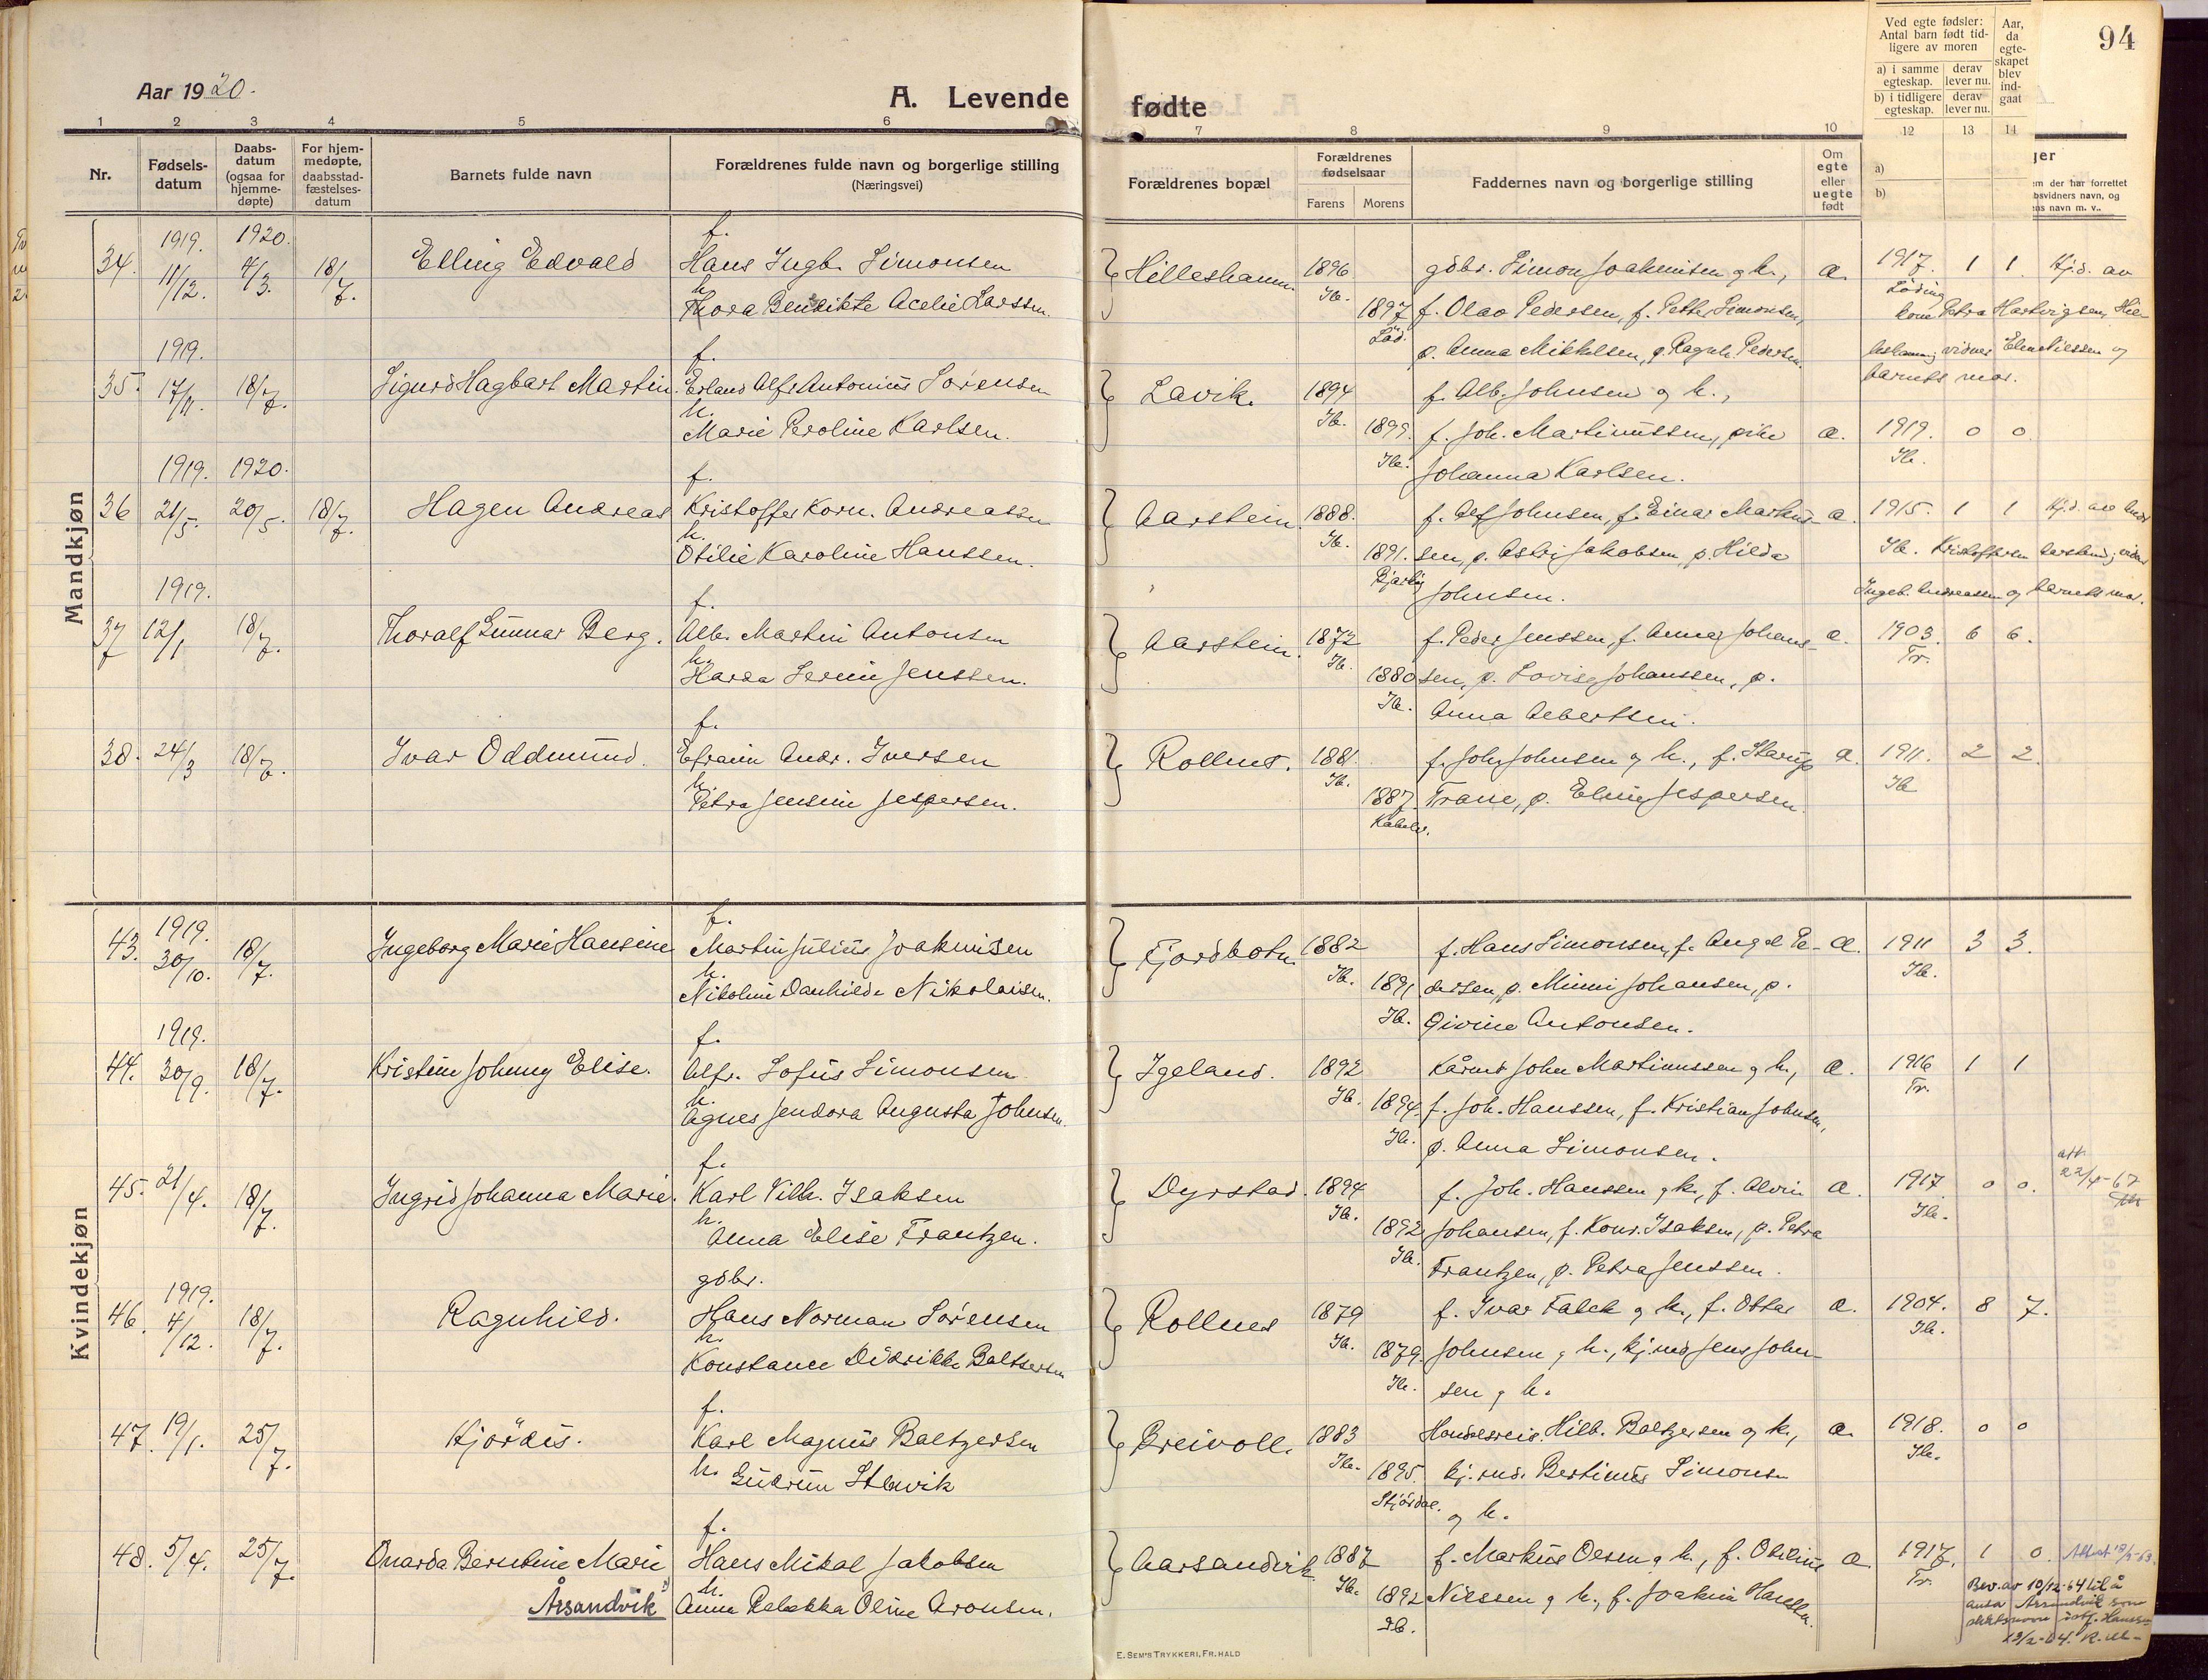 Aar 1920.
A. Levende
fødte
94
1 2 3 4 5 6 7 8 9 10 12 13 14
Nr.
Fødsels-
datum
Daabs-
datum
(ogsaa for
hjemme-
døpte)
For hjem-
medøpte,
daabsstad-
fæstelses-
datum
Barnets fulde navn
Forældrenes fulde navn og borgerlige stilling
(Næringsvei)
Forældrenes bopæl
Forældrenes
fødselsaar
Farens Morens
Faddernes navn og borgerlige stilling
Om
egte
eller
uegte
født
Ved egte fødsler:
Antal barn født tid-
ligere av moren
a) i samme
egteskap.
derav
lever nu.
b) i tidligere
egteskap.
derav
lever nu.
Aar,
da
egte-
skapet
blev
ind-
gaat
a)
b)
Mandkjøn
1919. 1920. f.
34. 11/12. 4/3. 18/7. Elling Edvald Hans Ingb. Simonsen Hilleshamn. 1896 gdbr. Simon Joakimsen og h., a. 1917. 1 1 Hj.d. av
h. Thora Bendikte Acelie Larssen. Ib. 1897 f. Olav Pedersen, f. Petter Simonsen, Löding
Petra Hartvigsen, Hil-
Löd. p. Anna Mikkelsen, p. Ragnh. Pedersen. leshamn, vidner Nilssen og
barnets mor.
1919. f.
35. 17/11. 18/7. Sigurd Hagbart Martin. Erland Alfr. Antonius Sørensen Lavik. 1894 f. Alb. Johnsen og h.,
h. Marie Peroline Karlsen. Ib. 1899. f. Joh. Martinussen, pike a. 1919. 0 0.
Ib. Johanna Karlsen. Ib.
1919. 1920. f.
36 21/5. 20/5. 18/7. Hagen Andreas Kristoffer Korn. Andreassen Aarstein. 1888. f. Alf Johnsen, f. Einar Markus- a. 1915. 1 1 Hj.d. av
h. Otilie Karoline Hanssen. Ib. 1891. sen, p. Astri Jakobsen, p. Hilda Ib. Kristoffersen Aarstein, vidner
Johnsen. Ingeb. Andreassen og barnets mor.
1919. f.
37 12/1 18/7. Thoralf Gunnar Berg. Alb. Martin Antonsen Aarstein. 1872 f. Peder Jenssen, f. Johans- a. 1903. 6 6.
h. Harda Jenssen. Ib. 1880 sen, p. Lovise Johanssen, p. Tr.
Ib. Anna Albertsen.
f.
38. 24/3 18/7. Ivar Oddmund. Efraim Andr. Iversen Rollnes. 1881. f. Joh. Johnsen og h., f. Starup a. 1911. 2 2.
h. Petra Jensine Jespersen. Ib. 1887. Trane, p. Eline Jespersen. Ib
Kabelv.
Kvindekjøn
1919. f.
43. 30/10. 18/7. Ingeborg Marie Hansine Martin Julius Joakimsen Fjordbotn. 1882 f. Hans Simonsen, f. Angel Pe- a. 1911 3 3.
h. Nikoline Danhilde Nikolaisen. Ib. 1891 dersen, p. Minni Johansen, p. Ib.
Ib. Antonsen.
1919. f.
44. 30/9. 18/7. Kristine Johnny Elise. Alfr. Sofus Simonsen Igeland. 1892 Kårmd. John Martinussen og h., a. 1916 1 1
h. Agnes Jendora Augusta Johnsen. Ib. 1894. f. Joh. Hanssen, f. Kristian Johnsen, Tr.
Ib. p. Anna Simonsen.
f. att.
45. 21/4. 18/7. Ingrid Johanna Marie. Karl Vilh. Isaksen Dyrstad. 1894 f. Joh. Hanssen og h., f. Alvin a. 1917 0 0. 22/4-67
h. Anna Elise Frantzen. Ib. 1892 Johansen, f. Konr. Isaksen, p. Petra Ib.
Ib. Frantzen, p. Petra Jenssen.
1919. gdbr.
46. 4/12. 18/7. Ragnhild. Hans Norman Sørensen Rollnes 1879 f. Ivar Falck og h., f. Ottar a. 1904. 8 7.
h. Konstance Didrikke Baltsersen Ib. 1879. Johnsen og h., kj.md. Jens John- Ib.
Ib. sen og h.
f.
47. 19/1. 25/7. Hjördis. Karl Magnus Baltzersen Breivoll. 1883 Handelsreis. Hilb. Baltzersen og h., a. 1918. 0 0
h. Gudrun Ib. 1895. kj.md. Bertinus Simonsen Ib.
Stjördal. og h.
f.
48. 5/4. 25/7. Onarda Berntine Marie Hans Mikal Jakobsen Aarsandvik. 1887 f. Markus Olsen og h., f. Otelius a. 1917. 1 0.
Årsandvik h. Anna Rebekka Oline Aronsen. Ib. 1892 Nilssen og h., f. Joakim Hanssen. Tr. Bev. av 10/12-64 til å
Ib. anta Årsandvik som
slektsnavn
E. SEM'S TRYKKERI, FR. HALD